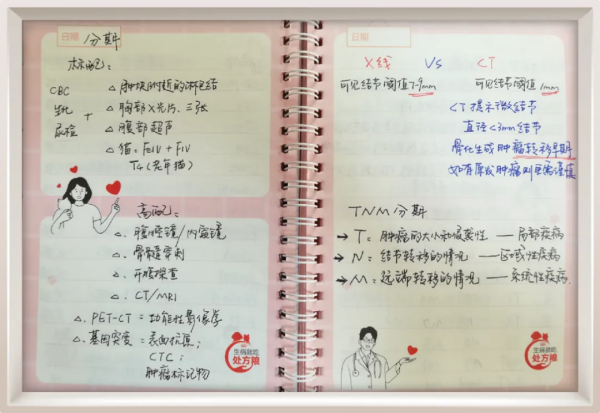 日期 分期
标配:
CBC
生化 +
尿检
△ 肿块附近的淋巴结
△ 胸部X光片. 三张
△ 腹部超声
△ 猫: FeLV + FIV
T4(老年猫)
高配:
△. 腹腔镜/内窥镜
△. 骨髓穿刺
△. 开腹探查
△. CT/MRI
△. PET-CT = 功能性影像学
△. 基因突变 = 表面抗原;
CTC;
肿瘤标记物
生病就吃
处方粮
日期
X线 VS CT
可见结节阈值7-9mm 可见结节阈值1mm
CT提示微结节
直径<3mm结节
骨化生或肿瘤转移早期
如有原发肿瘤则更需谨慎
TNM分期
→ T: 肿瘤的大小和侵袭性 — 局部疾病
→ N: 结节转移的情况 — 区域性疾病
→ M: 远端转移的情况 — 系统性疾病.
生病就吃
处方粮